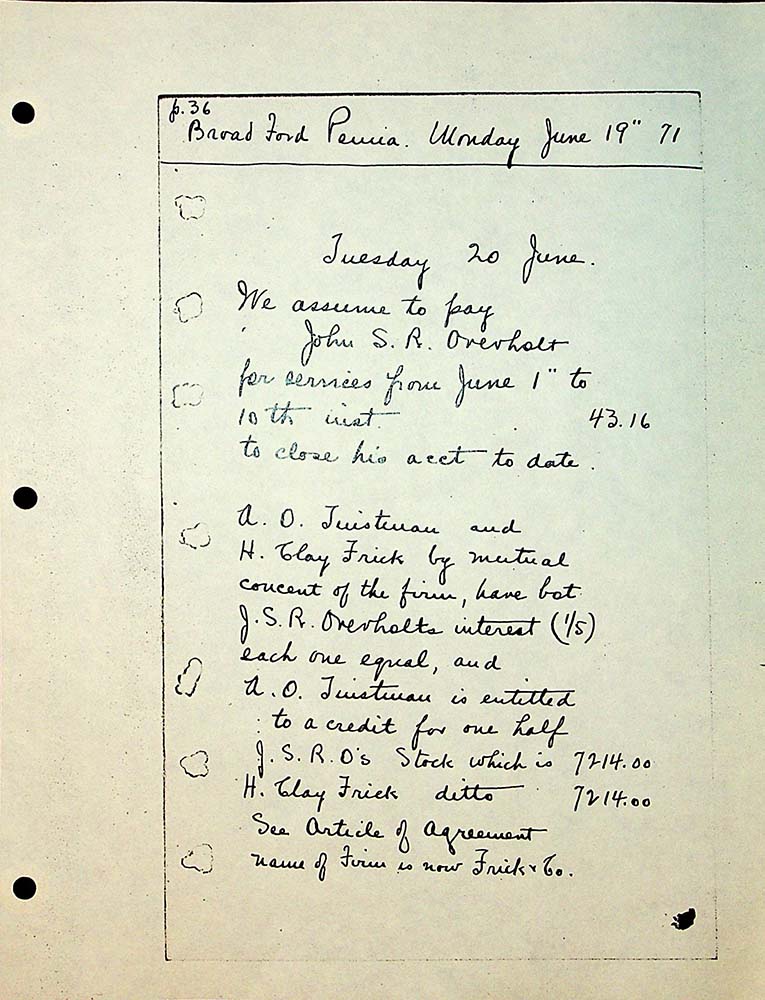 p. 36
Broad Ford Penna. Monday June 19" 71
Tuesday 20 June.
We assume to pay
John S. R. Overholt
for services from June 1" to
10th inst. 43.16
to close his acct to date.
A. O. Tinstman and
H. Clay Frick by mutual
concent of the firm, have bot
J. S. R. Overholts interest (1/5)
each one equal, and
A. O. Tinstman is entitled
to a credit for one half
J. S. R. O's Stock which is 7214.00
H. Clay Frick ditto 7214.00
See Article of Agreement
name of Firm is now Frick & Co.